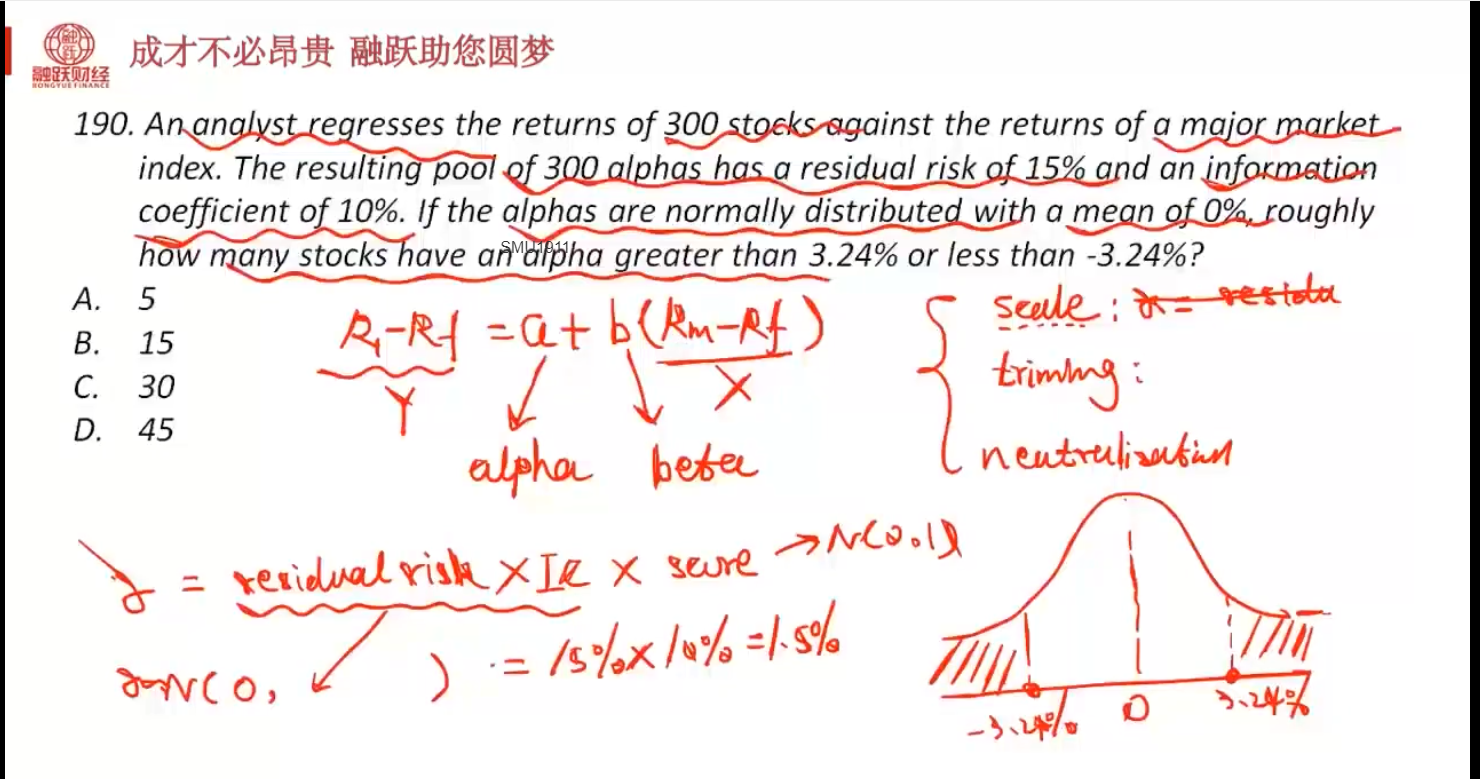 成才不必昂贵 融跃助您圆梦
融跃
融跃财经
RONGYUE FINANCE
190. An analyst regresses the returns of 300 stocks against the returns of a major market
index. The resulting pool of 300 alphas has a residual risk of 15% and an information
coefficient of 10%. If the alphas are normally distributed with a mean of 0%, roughly
SMU1911
how many stocks have an alpha greater than 3.24% or less than -3.24%?
A. 5
B. 15
C. 30
D. 45
R₁-Rf = a + b(Rm-Rf)
Y
X
alpha beta
scale:
triming:
neutralization
α = residual risk × IC × score → N(0,1)
α~N(0, ) = 15% × 10% = 1.5%
-3.24% 0 3.24%